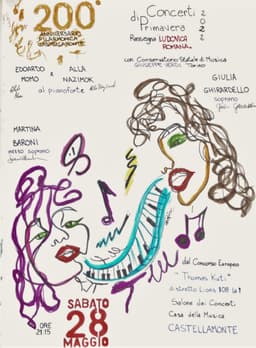 200°
ANNIVERSARIO
FILARMONICA
CASTELLAMONTE
Concerti
di
Primavera
2022
Rassegna LUDOVICA
ROMANA
con Conservatorio Statale di Musica
GIUSEPPE VERDI Torino
EDOARDO
MOMO
&
ALLA
NAZIMOK
al pianoforte
GIULIA
GHIRARDELLO
soprano
MARTINA
BARONI
mezzo soprano
dal Concorso Europeo
"Thomas Kuti"
distretto Lions 108 Ia1
Salone dei Concerti
Casa della Musica
CASTELLAMONTE
ORE
21.15
SABATO
28
MAGGIO